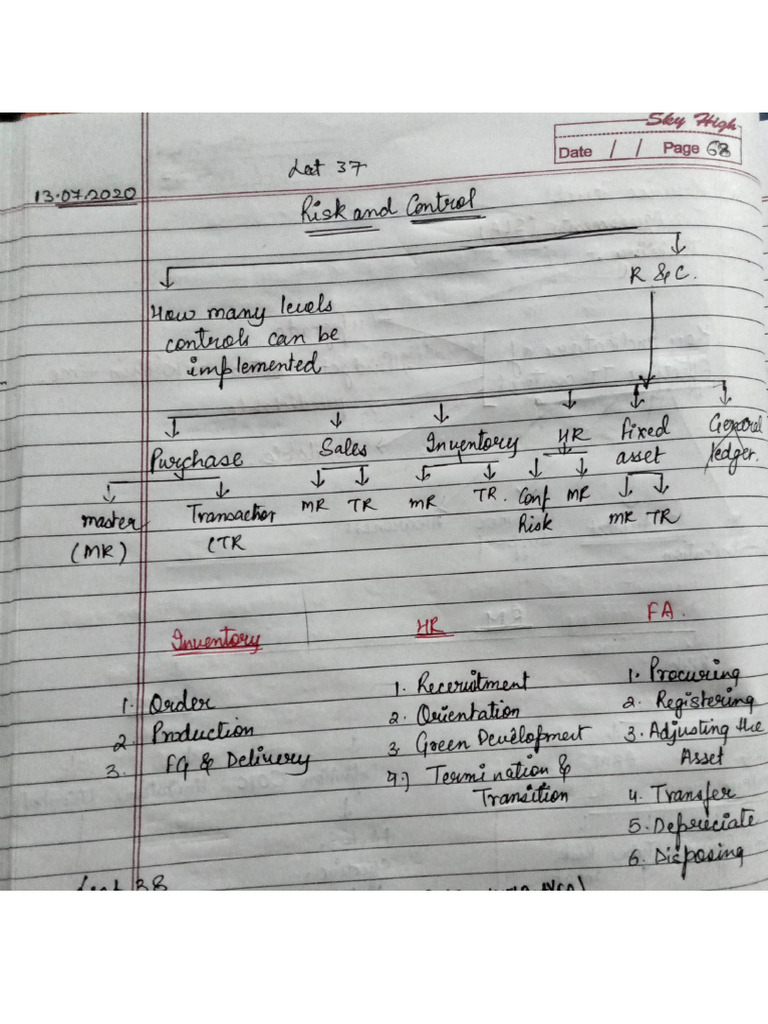 Sky High
Date / / Page 68
Lect 37
13.07.2020
Risk and Control
R & C.
How many levels
controls can be
implemented
Purchase Sales Inventory HR Fixed asset General ledger.
master (MR) Transaction (TR MR TR MR TR. Conf Risk MR MR TR
Inventory
1. Order
2. Production
3. FG & Delivery
HR
1. Receruitment
2. Orientation
3. Green Development
4.) Termination &
Transition
FA.
1. Procuring
2. Registering
3. Adjusting the
Asset
4. Transfer
5. Depreciate
6. Disposing
Lect 38